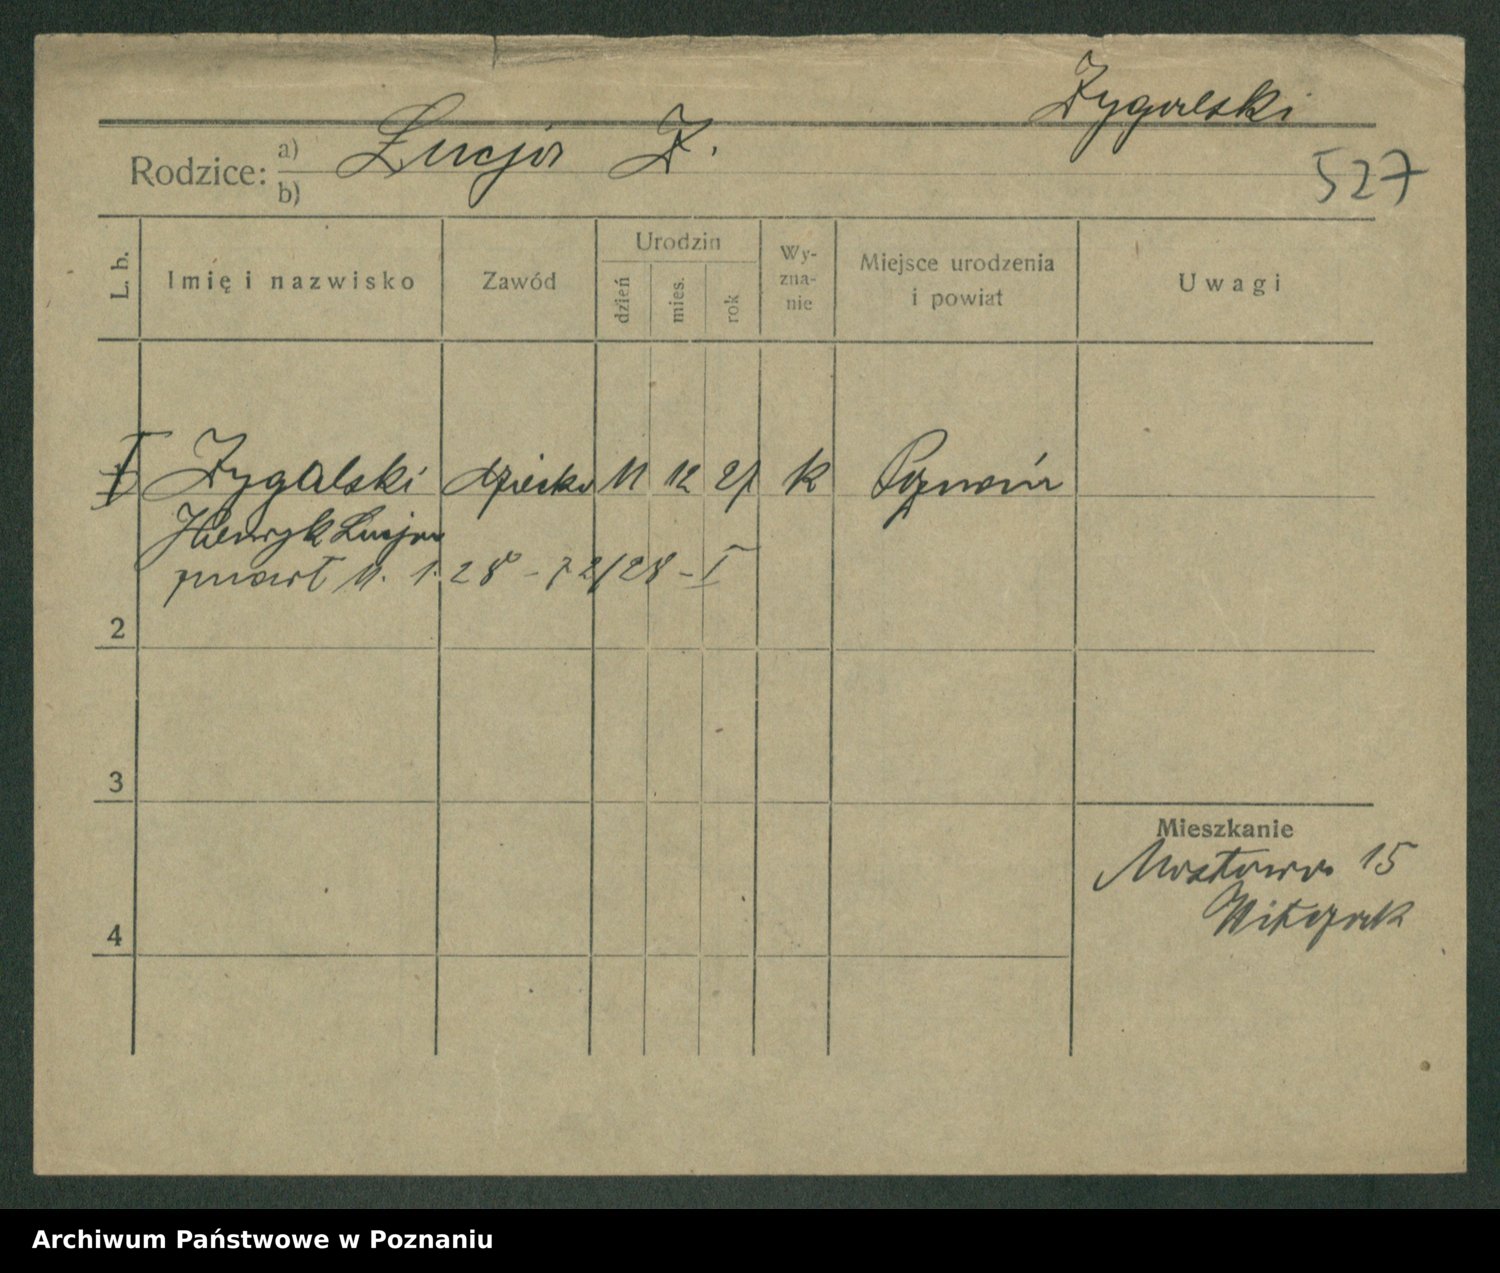 Zygalski
Rodzice: a) Łucja Z.
b)
527
L. b.
Imię i nazwisko
Zawód
Urodzin
dzień
mies.
rok
Wy-
zna-
nie
Miejsce urodzenia
i powiat
Uwagi
I Zygalski dziecko 11 12 27 k Poznań
Henryk Lucjan
zmarł 11. 1. 28 - 72/28 - I
2
3
4
Mieszkanie
Mostowa 15
Witczak
Archiwum Państwowe w Poznaniu